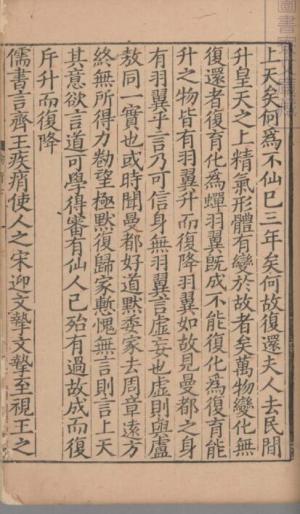 上天矣何為不仙已三年矣何故復還夫人去民間
升皇天之上精氣形體有變於故者矣萬物變化無
復還者復育化為蟬羽翼既成不能復化為復育能
升之物皆有羽翼升而復降羽翼如故見曼都之身
有羽翼乎言乃可信身無羽翼言虛妄也虛則與盧
敖同一實也或時聞曼都好道默委家去周章遠方
終無所得力勌望極默復歸家慙愧無言則言上天
其意欲言道可學得審有仙人已殆有過故成而復
斥升而復降
儒書言齊王疾痟使人之宋迎文摯文摯至視王之
圖書